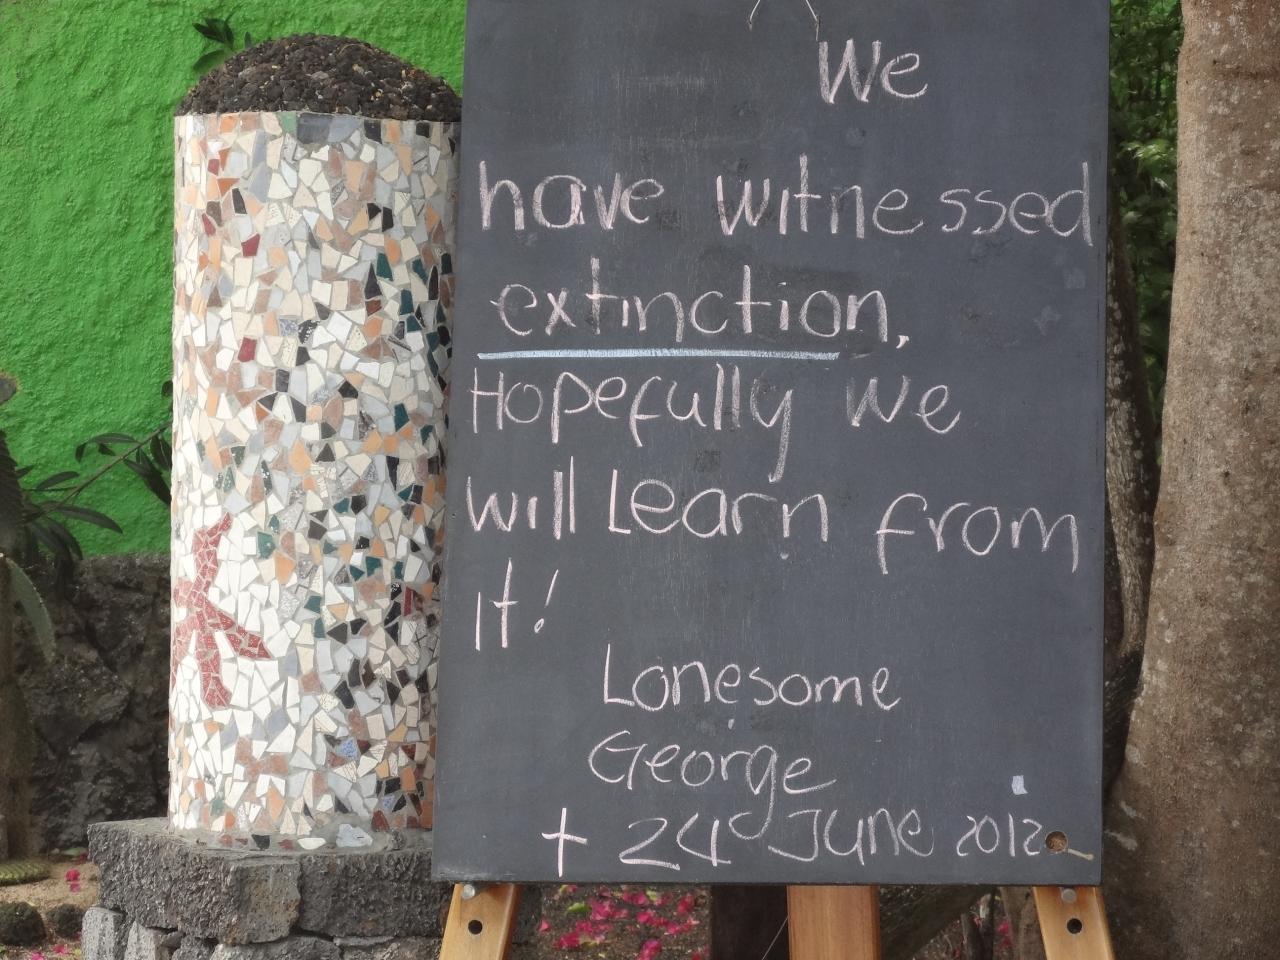 We
have witnessed
extinction.
Hopefully we
will Learn from
it!
Lonesome
George
† 24 June 2012